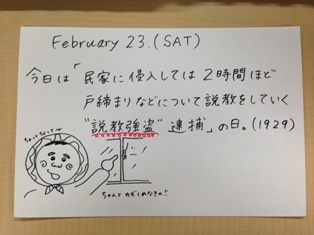 February 23.(SAT)
今日は「民家に侵入しては2時間ほど
戸締まりなどについて説教をしていく
"説教強盗"逮捕」の日。(1929)
ちゃんと かぎしめなきゃ!!